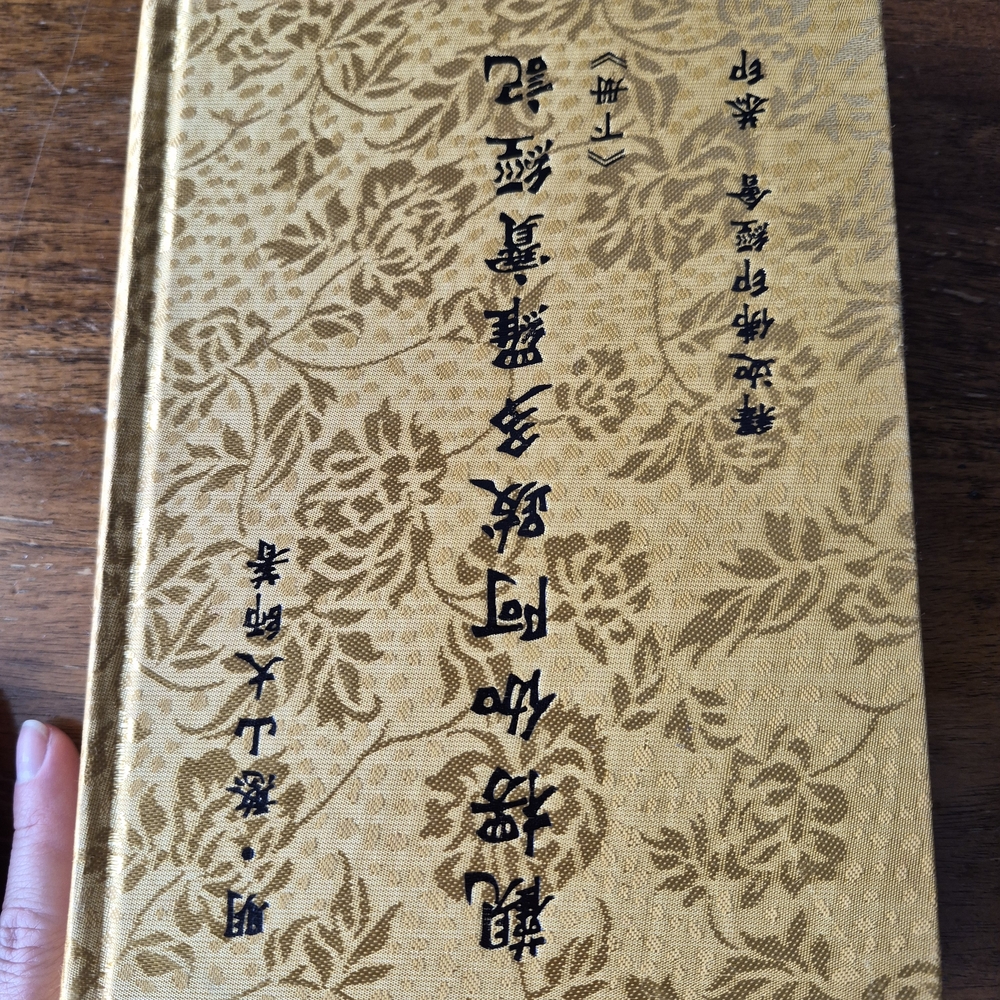 明・憨山大師著
觀楞伽阿跋多羅寶經記
《下冊》
釋迦佛印經會 恭印